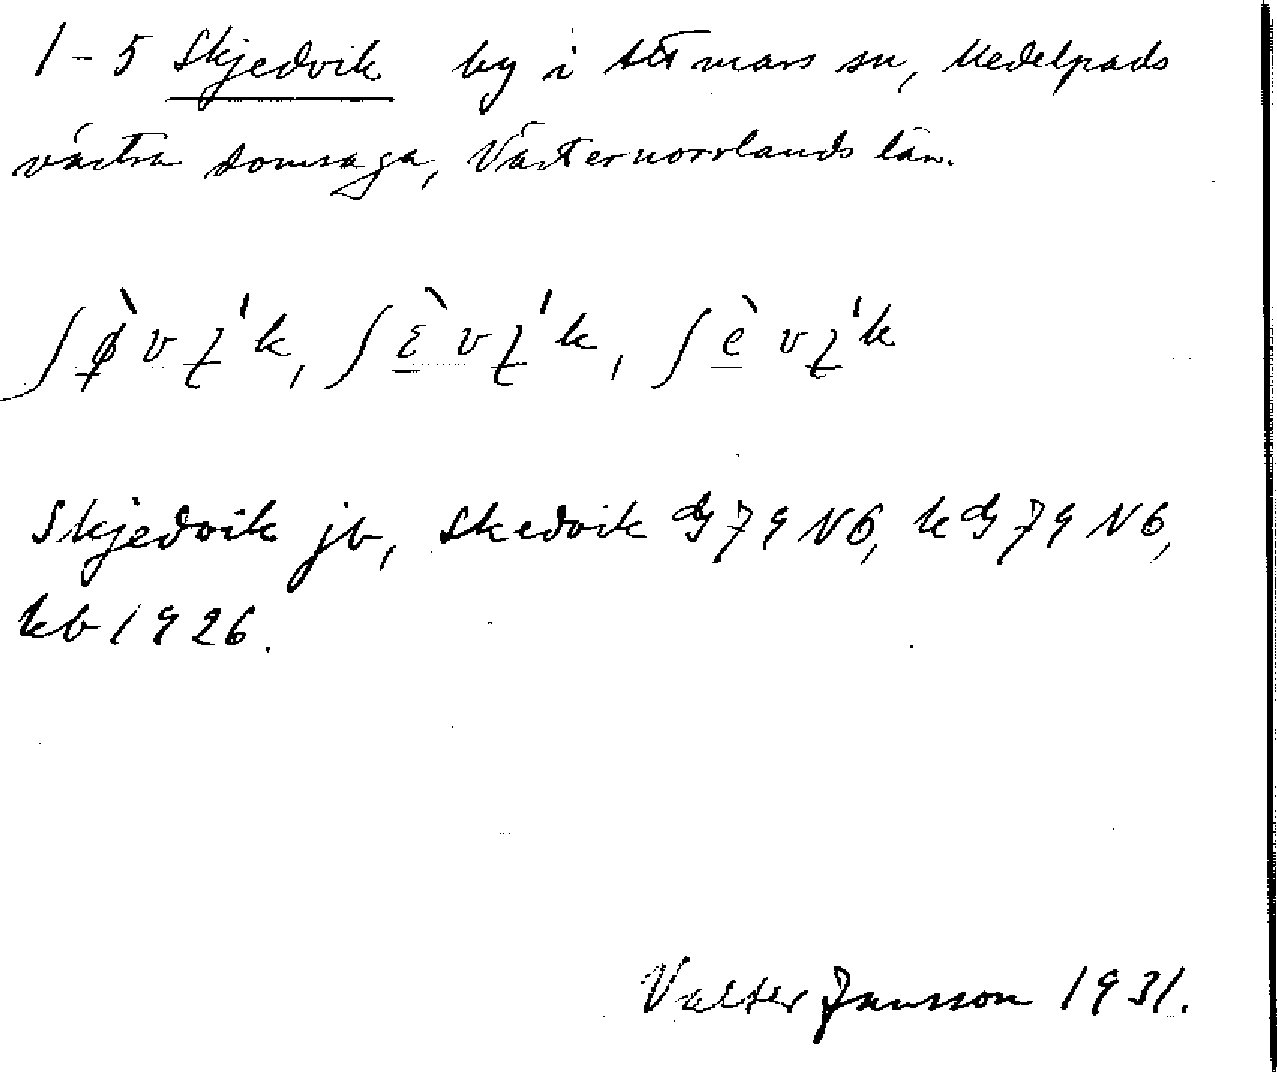 1-5 Skjedvik by i Attmars sn, Medelpads
västra domsaga, Västernorrlands län.
Skjedvik jb, Skedvik GJ 79 NÖ, kGJ 79 NÖ,
kb 1926.
Valter Jansson 1931.